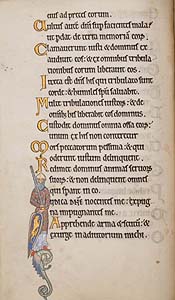 eius ad preces eorum.
Uultus autē dñi sup facientes mala: ut
pdat de terra memoriā eorū.
Clamauerunt iusti & dominus ex
audiuit eos: & ex omnibus tribula
tionibus eorum liberauit eos.
Iuxta est dñs his qui tribulato sunt
corde: & humiles spū saluabit.
Multe tribulationes iustorū: & de
omnibus his liberabit eos dominus.
Custodit dominus omnia ossa eorū:
unum ex his non conteretur.
Mors peccatorum pessima: & qui
oderunt iustum delinquent.
Redimet dominus animas seruorū
suorū: & non delinquent omnes
qui sperant in eo.
Iudica dñe nocentes me: expugna
impugnantes me.
Apprehende arma & scutū: &
exurge in adiutorium michi.